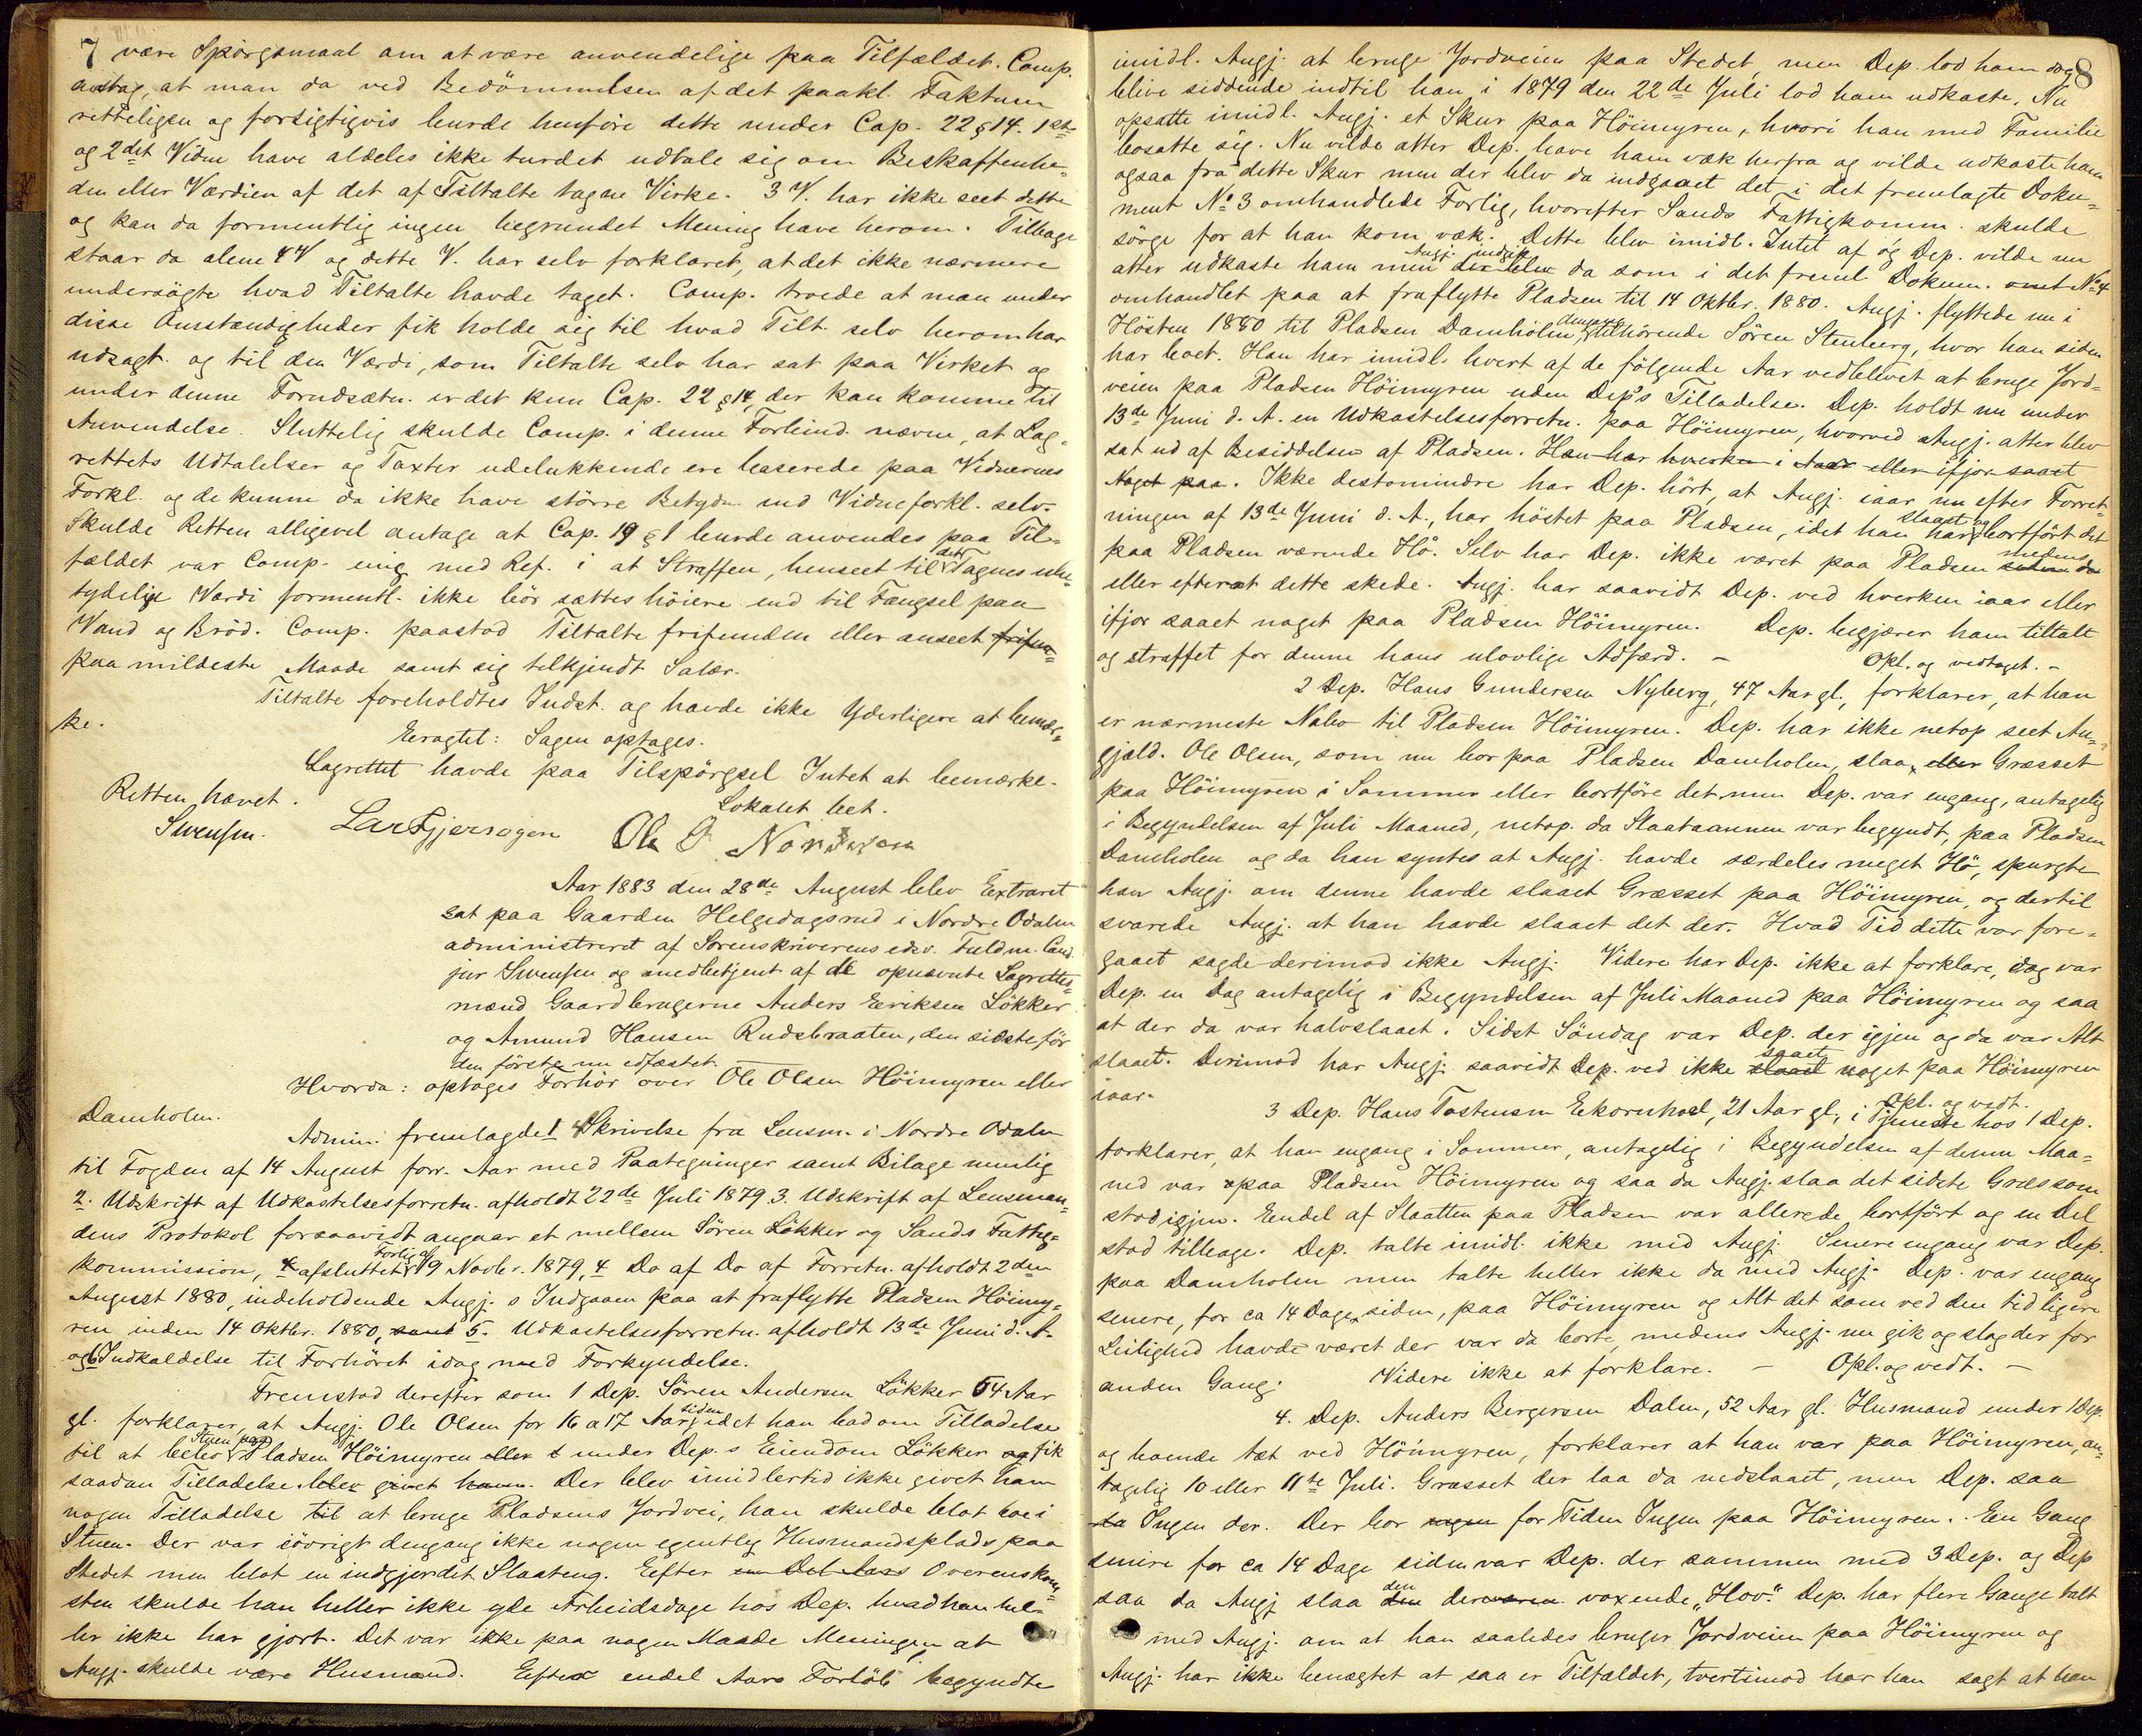 7 være Spörgsmaal om at være anvendelige paa Tilfældet. Comp.
antog, at man da ved Bedömmelsen af det paakl. Faktum
retteligen og forsigtigvis burde henföre dette under Cap. 22 § 14. 1ste
og 2det Vidne have aldeles ikke turdet udtale sig om Beskaffenhe-
den eller Værdien af det af Tiltalte tagne Virke. 3 V. har ikke seet dette
og kan da formentlig ingen begrundet Mening have herom. Tilbage
staar da alene 4 V og dette V. har selv forklaret, at det ikke nærmere
undersögte hvad Tiltalte havde taget. Comp. troede at man under
disse Omstændigheder fik holde sig til hvad Tilt. selv herom har
udsagt og til den Værdi, som Tiltalte selv har sat paa Virket og
under denne Forudsætn. er det kun Cap. 22 § 14, der kan komme til
Anvendelse. Sluttelig skulde Comp. i denne Forbind. nævne, at Lag-
rettets Udtalelser og Taxter udelukkende ere baserede paa Vidnernes
Forkl. og de kunne da ikke have större Betydn. end Vidneforkl. selv.
Skulde Retten alligevel antage at Cap. 19 § 1 burde anvendes paa Til-
fældet var Comp. enig med Ref. i at Straffen, henseet til det Tagnes ube-
tydelige Værdi formentl. ikke bör sættes höiere end til Fængsel paa
Vand og Bröd. Comp. paastod Tiltalte frifunden eller anseet frifun-
paa mildeste Maade samt sig tilkjendt Salær.
Tiltalte foreholdtes Indst. og havde ikke Yderligere at bemær-
ke.
Eragtet: Sagen optages.
Lagrettet havde paa Tilspörgsel Intet at bemærke.
Retten hævet. Lokalet bet.
Swensen. Lars Gjersøgen Ole O. Nordseven
Aar 1883 den 28de August blev Extraret
sat paa Gaarden Helgedagsrud i Nordre Odalen
administreret af Sorenskriverens edsv. Fuldm. Cand.
jur Swensen og medbetjent af de opnævnte Lagrettes-
mænd Gaardbrugerne Anders Eriksen Lökker
og Amund Hansen Rudsbraaten, den sidste för
den förste nu edfæstet.
Hvorda: optoges Forhör over Ole Olsen Höimyren eller
Damholen.
Admin. fremlagde 1 Skrivelse fra Lensm. i Nordre Odalen
til Fogden af 14 August forr. Aar med Paategninger samt Bilage nemlig
2. Udskrift af Udkastelsesforretn. afholdt 22de Juli 1879. 3. Udskrift af Lensman-
dens Protokol forsaavidt angaar et mellem Sören Lökker og Sands Fattig-
kommission, afsluttet Forlig af 19 Novbr. 1879, 4 Do af Do af Forretn. afholdt 2den
August 1880, indeholdende Angj.s Indgaaen paa at fraflytte Pladsen Höimy-
ren inden 14 Oktbr. 1880, samt 5. Udkastelsesforretn. afholdt 13de Juni d. A.
og 6 Indkaldelse til Forhöret idag med Forkyndelse.
Fremstod derefter som 1 Dep. Sören Andersen Lökker 54 Aar
gl. forklarer, at Angj. Ole Olsen for 16 a 17 Aar siden, idet han bad om Tilladelse
til at bebo Stuen paa Pladsen Höimyren eller t under Dep.s Eiendom Lökker og fik
saadan Tilladelse blev givet ham. Der blev imidlertid ikke givet ham
nogen Tilladelse til at bruge Pladsens Jordvei, han skulde blot bo i
Stuen. Der var iövrigt dengang ikke nogen egentlig Husmandsplads paa
Stedet men blot en indgjerdet Slaateng. Efter en Del Aars Overenskom-
sten skulde han heller ikke yde Arbeidsdage hos Dep. hvad han hel-
ler ikke har gjort. Det var ikke paa nogen Maade Meningen, at
Angj. skulde være Husmand. Efter endel Aars Forlöb begyndte
8
imidl. Angj. at bruge Jordveien paa Stedet, men Dep. lod ham dog
blive siddende indtil han i 1879 den 22de Juli lod ham udkaste. Nu
opsatte imidl. Angj. et Skur paa Höimyren, hvori han med Familie
bosatte sig. Nu vilde atter Dep. have ham væk herfra og vilde udkaste ham
ogsaa fra dette Skur men der blev da indgaaet det i det fremlagte Doku-
ment No 3 omhandlede Forlig, hvorefter Sands Fattigkomm. skulde
sörge for at han kom væk. Dette blev imidl. Intet af og Dep. vilde nu
atter udkaste ham men der blev Angj. indgik da som i det freml Dokum. No 4
omhandlet paa at fraflytte Pladsen til 14 Oktbr. 1880. Angj. flyttede nu i
Hösten 1880 til Pladsen Damholen, dengang tilhörende Sören Stenberg, hvor han siden
har boet. Han har imidl. hvert af de fölgende Aar vedblevet at bruge Jord-
veien paa Pladsen Höimyren uden Dep's Tilladelse. Dep. holdt nu under
13de Juni d. A. en Udkastelsesforretn. paa Höimyren, hvorved Angj. atter blev
sat ud af Besiddelsen af Pladsen. Han har hverken i Aar eller ifjor saaet
Noget paa. Ikke destomindre har Dep. hört, at Angj. iaar nu efter Forret-
ningen af 13de Juni d. A., har höstet paa Pladsen, idet han har slaaet og bortfört det
paa Pladsen værende Hö. Selv har Dep. ikke været paa Pladsen medens
eller efterat dette skede. Angj. har saavidt Dep. ved hverken iaar eller
ifjor saaet noget paa Pladsen Höimyren. Dep. begjærer ham tiltalt
og straffet for denne hans ulovlige Adfærd. – Opl. og vedtaget. –
2 Dep. Hans Gundersen Nyberg, 47 Aar gl., forklarer, at han
er nærmeste Nabo til Pladsen Höimyren. Dep. har ikke netop seet An-
gjæld. Ole Olsen, som nu bor paa Pladsen Damholen, slaa eller Græsset
paa Höimyren i Sommer eller bortföre det, men Dep. var engang, antagelig
i Begyndelsen af Juli Maaned, netop da Slaataannen var begyndt, paa Pladsen
Damholen og da han syntes at Angj. havde særdeles meget Hö, spurgte
han Angj. om denne havde slaaet Græsset paa Höimyren, og dertil
svarede Angj. at han havde slaaet det der. Hvad Tid dette var fore-
gaaet sagde derimod ikke Angj. Videre har Dep. ikke at forklare, dog var
Dep. en Dag antagelig i Begyndelsen af Juli Maaned paa Höimyren og saa
at der da var halvslaaet. Sidst Söndag var Dep. der igjen og da var Alt
slaaet. Derimod har Angj. saavidt Dep. ved ikke slaaet saaet noget paa Höimyren
iaar. Opl. og vedt.
3 Dep. Hans Tostensen Ekornhool, 21 Aar gl., i Tjeneste hos 1 Dep.
forklarer, at han engang i Sommer, antagelig i Begyndelsen af denne Maa-
ned var paa Pladsen Höimyren og saa da Angj. slaa det sidste Græs som
stod igjen. Endel af Slaatten paa Pladsen var allerede bortfört og en Del
stod tilbage. Dep. talte imidl. ikke med Angj. Senere engang var Dep.
paa Damholen men talte heller ikke da med Angj. Dep. var engang
senere, for ca 14 Dage siden, paa Höimyren og Alt det som ved den tidligere
Leilighed havde været der var da borte, medens Angj. nu gik og slog der for
anden Gang. Videre ikke at forklare. – Opl. og vedt. –
4. Dep. Anders Bergersen Dalen, 52 Aar gl. Husmand under 1 Dep.
og boende tæt ved Höimyren, forklarer at han var paa Höimyren, an-
tagelig 10 eller 11te Juli. Græsset der laa da nedslaaet, men Dep. saa
da Ingen der. Der bor nogen for Tiden Ingen paa Höimyren. En Gang
senere for ca 14 Dage siden var Dep. der sammen med 3 Dep. og Dep
saa da Angj slaa den der voxende "Hov". Dep. har flere Gange talt
med Angj. om at han saaledes bruger Jordveien paa Höimyren og
Angj. har ikke benægtet at saa er Tilfældet, tvertimod har han sagt at han